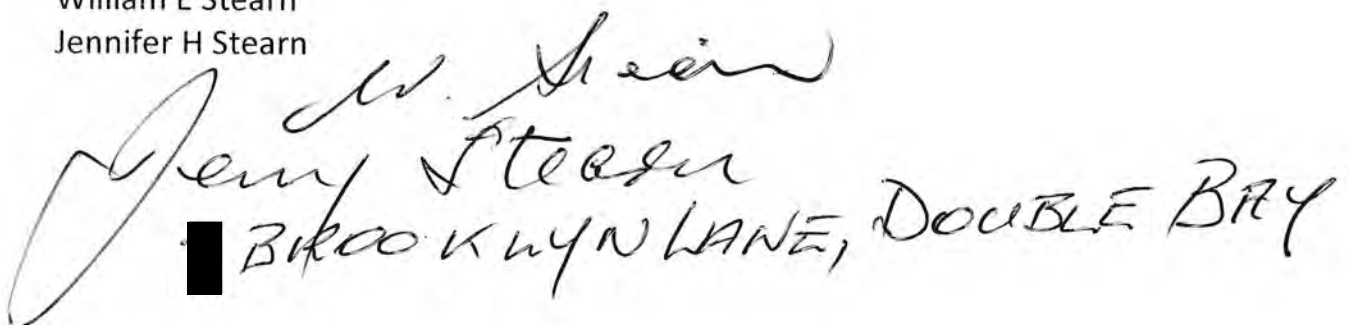 William E Stearn
Jennifer H Stearn
W. Stearn
Jenny Stearn
BROOKLYN LANE, DOUBLE BAY